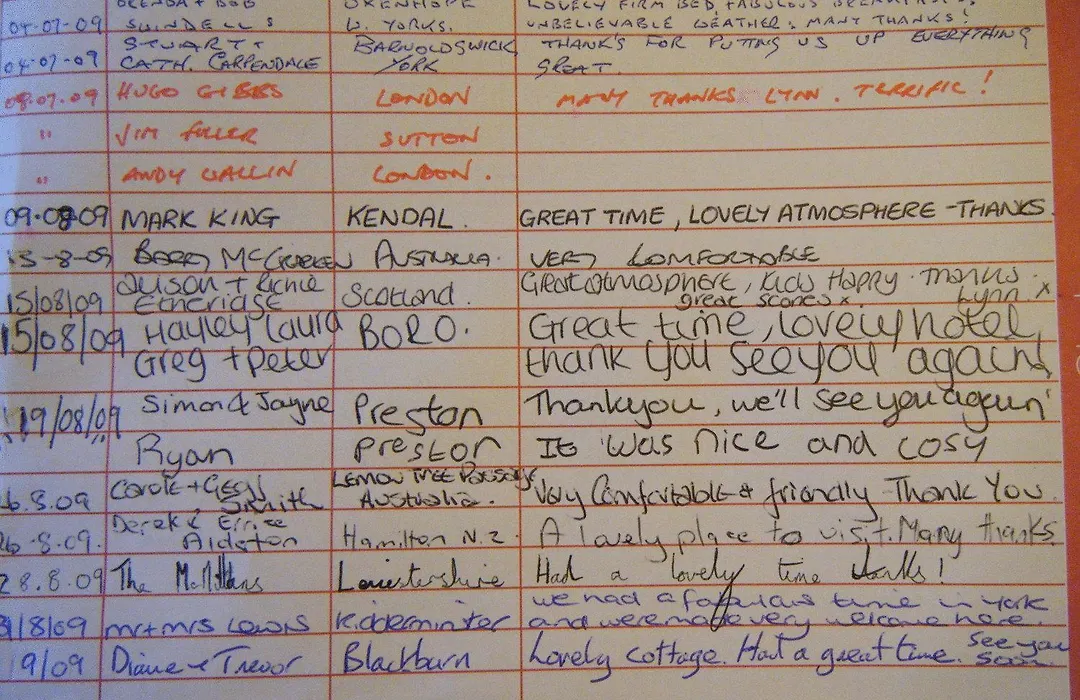 BRENDA + BOB OXENHOPE LOVELY FIRM BED, FABULOUS
04-07-09 SWINDELLS W. YORKS. UNBELIEVABLE WEATHER. MANY THANKS!
STUART + BARNOLDSWICK THANK'S FOR PUTTING US UP EVERYTHING
04-07-09 CATH. CARPENDALE YORK GREAT.
09.07.09 HUGO GIBBS LONDON MANY THANKS LYNN. TERRIFIC!
" JIM FULLER SUTTON
" ANDY WALLIN LONDON.
09.0809 MARK KING KENDAL. GREAT TIME, LOVELY ATMOSPHERE - THANKS.
-8-09 BARRY McCRACKEN AUSTRALIA. VERY COMFORTABLE
Alison + Richie Great atmosphere, kids Happy. Thanks
15/08/09 Etheridge Scotland. great scones x. Lynn. x
15/08/09 Hayley Laura BORO. Great time, lovely hotel,
Greg + Peter thank you see you again!
19/08/09 Simon & Jayne Preston Thankyou, we'll see you again
Ryan Preston It was nice and cosy
6.8.09 Carole + Smith LEMON TREE PASSAGE AUSTRALIA. Very Comfortable & friendly Thank You.
26-8-09. Derek & Alderton Hamilton N.Z. A lovely place to visit. Many thanks.
28.8.09 The McMillans Leicestershire Had a lovely time thanks!
we had a fabulous time in York
31/8/09 mr + mrs Lewis Kidderminster and were made very welcome here.
9/09 Diane & Trevor Blackburn Lovely cottage. Had a great time. see you soon.